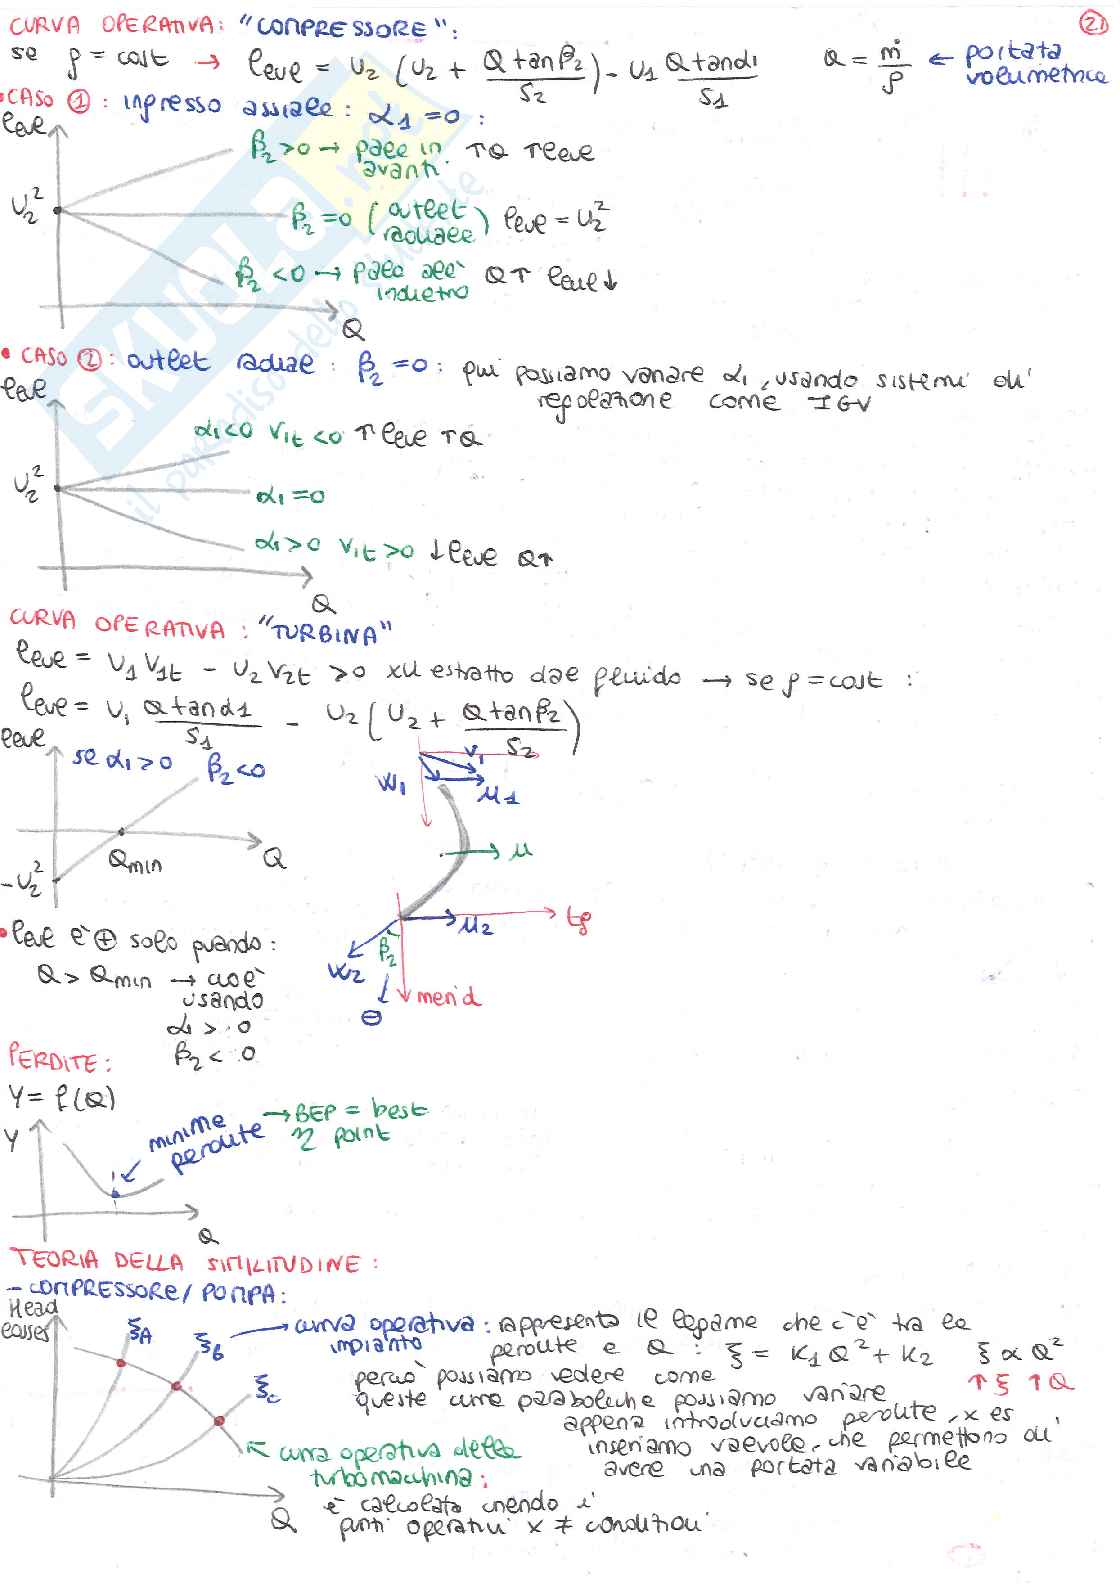 CURVA OPERATIVA: "COMPRESSORE": 21
se ρ = cost → leul = U2 (U2 + Q tanβ2 / S2) - U1 Q tanα1 / S1 Q = ṁ / ρ ← portata volumetrica
• CASO ① : ingresso assiale : α1 = 0 :
leul
β2 > 0 → pale in avanti ↑Q ↑leul
U2²
β2 = 0 (outlet radiale) leul = U2²
β2 < 0 → pale all' indietro Q↑ leul↓
Q
• CASO ② : outlet radiale : β2 = 0 : qui possiamo variare α1, usando sistemi di
regolazione come IGV
leul
α1<0 V1t<0 ↑leul ↑Q
U2²
α1 = 0
α1 > 0 V1t > 0 ↓leul Q↑
Q
CURVA OPERATIVA : "TURBINA"
leul = U1 V1t - U2 V2t > 0 x il estratto dal fluido → se ρ = cost :
leul = U1 Q tanα1 / S1 - U2 (U2 + Q tanβ2 / S2)
leul
se α1 > 0 β2 < 0
V1
W1
U1
Q
Qmin
-U2²
u
• leul è ⊕ solo quando :
U2
tg
Q > Qmin → cioè
usando
α1 > 0
β2 < 0
W2
β2
merid
⊖
PERDITE :
Y = f(Q)
Y
minime perdite
→ BEP = best
η point
Q
TEORIA DELLA SIMILITUDINE :
- COMPRESSORE / POMPA :
Head
losses
ξA
ξB → curva operativa : rappresenta il legame che c'è tra le
impianto perdite e Q : ξ = K1 Q² + K2 ξ ∝ Q²
ξC
perciò possiamo vedere come ↑ξ ↑Q
queste curve paraboliche possiamo variare
appena introduciamo perdite, x es
inseriamo valvole, che permettono di
avere una portata variabile
curva operativa della
turbomacchina :
è calcolata unendo i
punti operativi x ≠ condizioni
Q